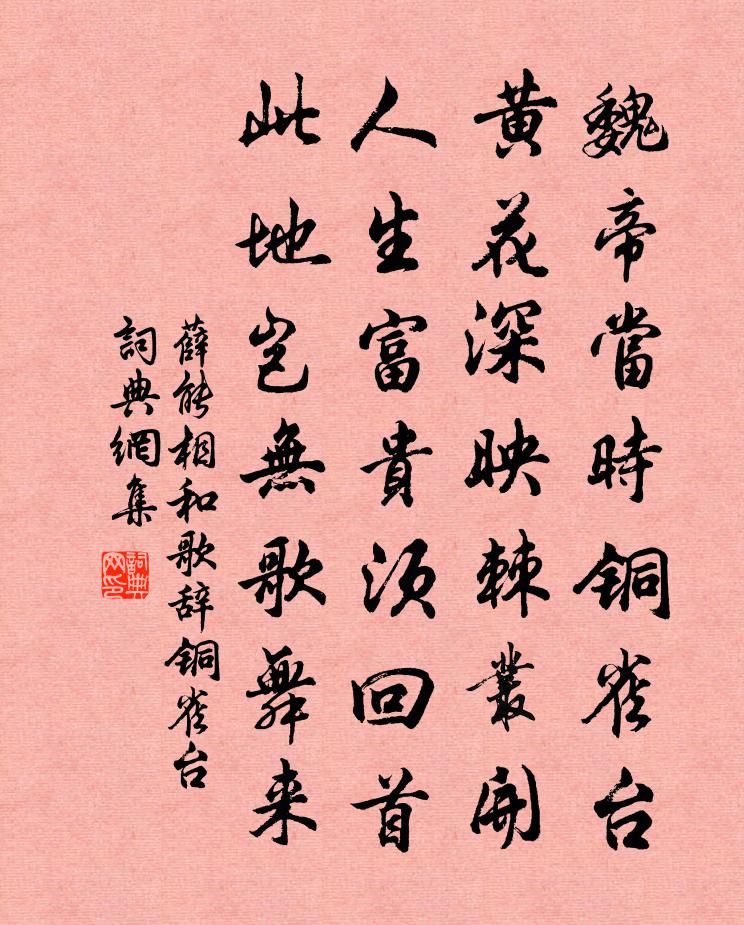 魏帝當時銅雀台
黄花深映棘叢開
人生富貴須回首
此地岂無歌舞来
薛能相和歌辞銅雀台
詞典網集
詞典网印